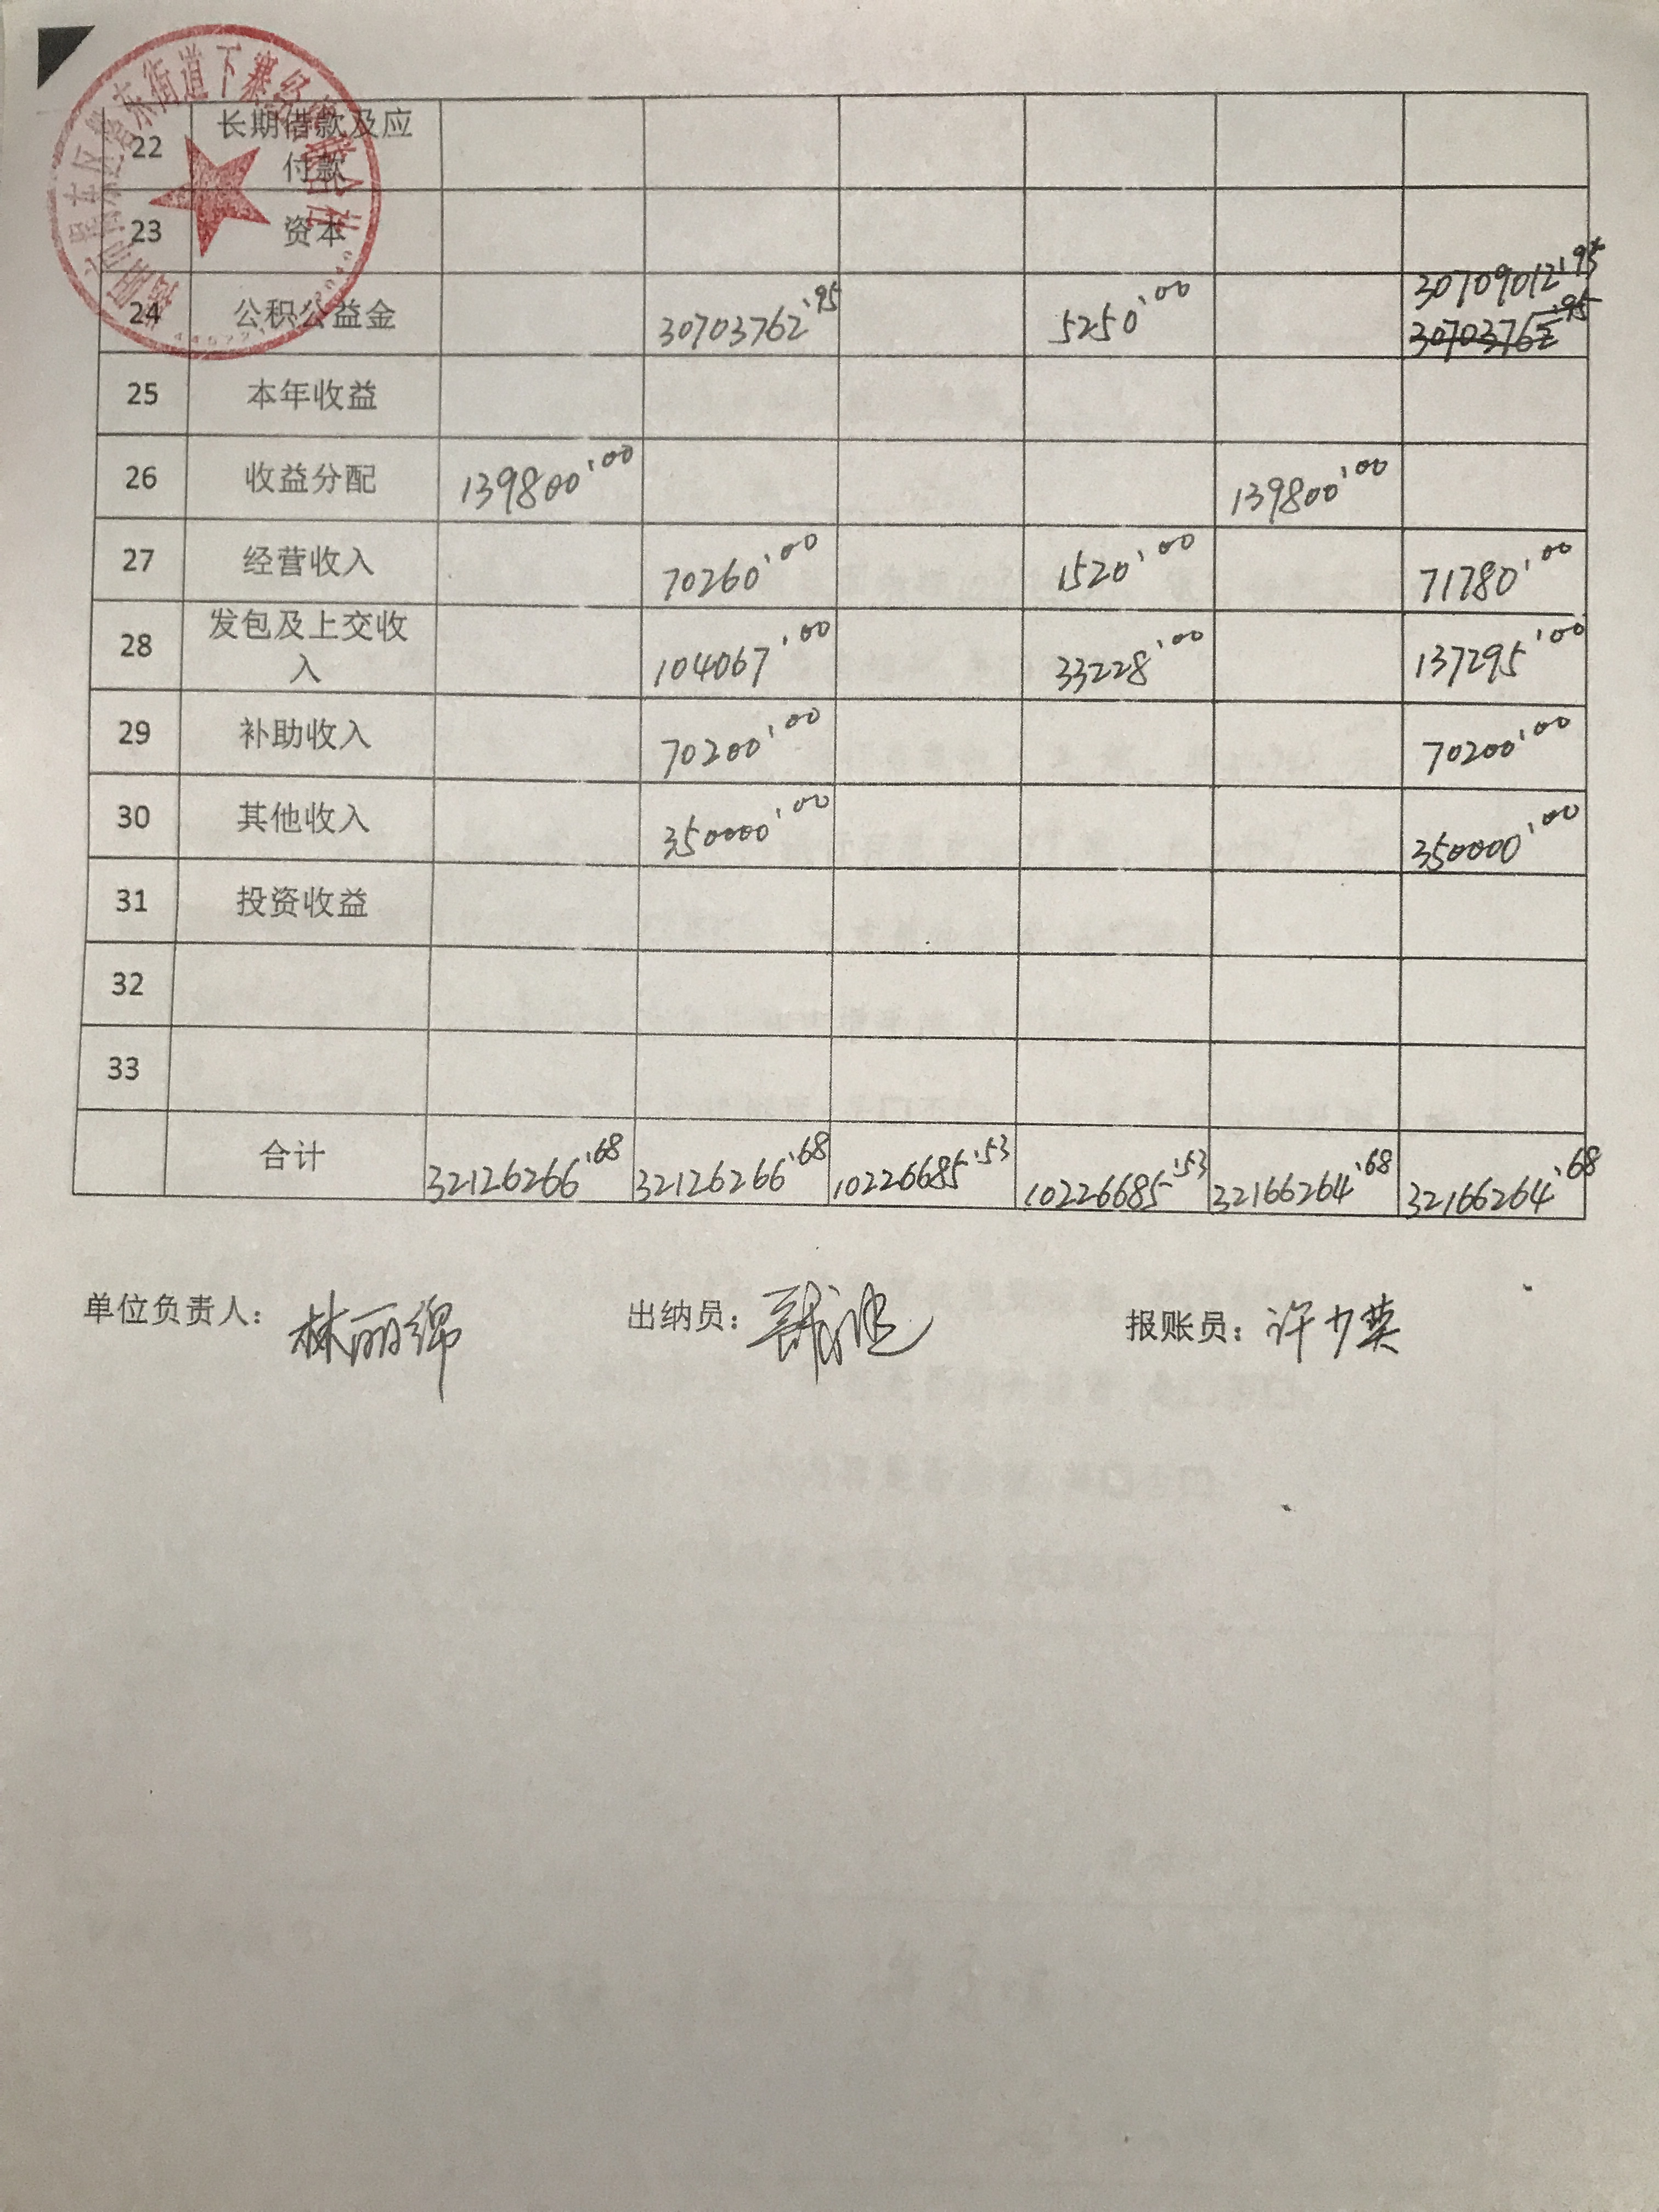 22 长期借款及应
付款
23 资本
24 公积公益金 30703762.95 5250.00 30709012.95
30703762.95
25 本年收益
26 收益分配 139800.00 139800.00
27 经营收入 70260.00 1520.00 71780.00
28 发包及上交收
入 104067.00 33228.00 137295.00
29 补助收入 70200.00 70200.00
30 其他收入 350000.00 350000.00
31 投资收益
32
33
合计 32126266.68 32126266.68 10226685.53 10226685.53 32166264.68 32166264.68
单位负责人： 林丽绵 出纳员： 报账员： 许少英
街道下寨经